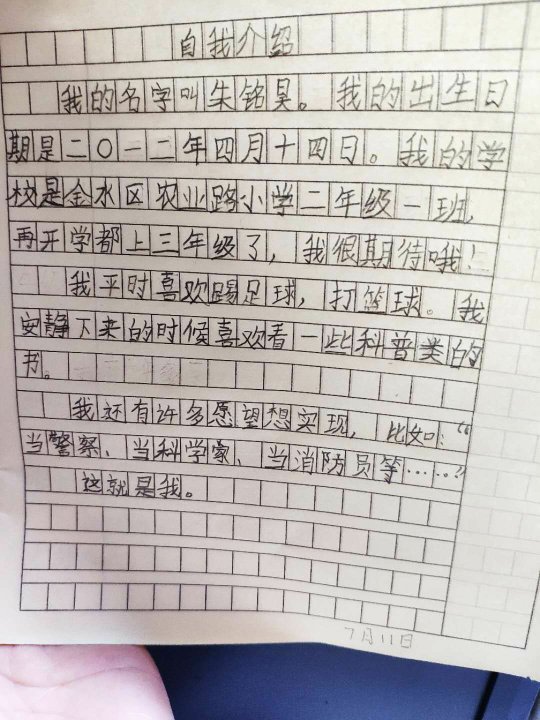 自我介绍
我的名字叫朱铭昊。我的出生日
期是二〇一二年四月十四日。我的学
校是金水区农业路小学二年级一班,
再开学都上三年级了,我很期待哦!
我平时喜欢踢足球,打篮球。我
安静下来的时候喜欢看一些科普类的
书。
我还有许多愿望想实现,比如:“
当警察、当科学家、当消防员等……”
这就是我。
7月11日